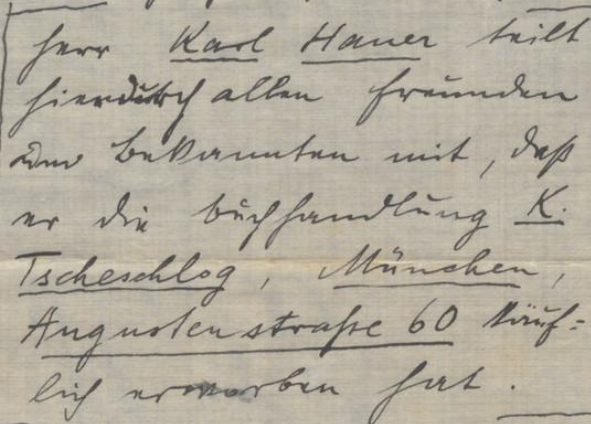 Herr Karl Hauer teilt
hierdurch allen Freunden
und Bekannten mit, daß
er die Buchhandlung K.
Tscheschlog, München,
Augustenstraße 60 käuf-
lich erworben hat.